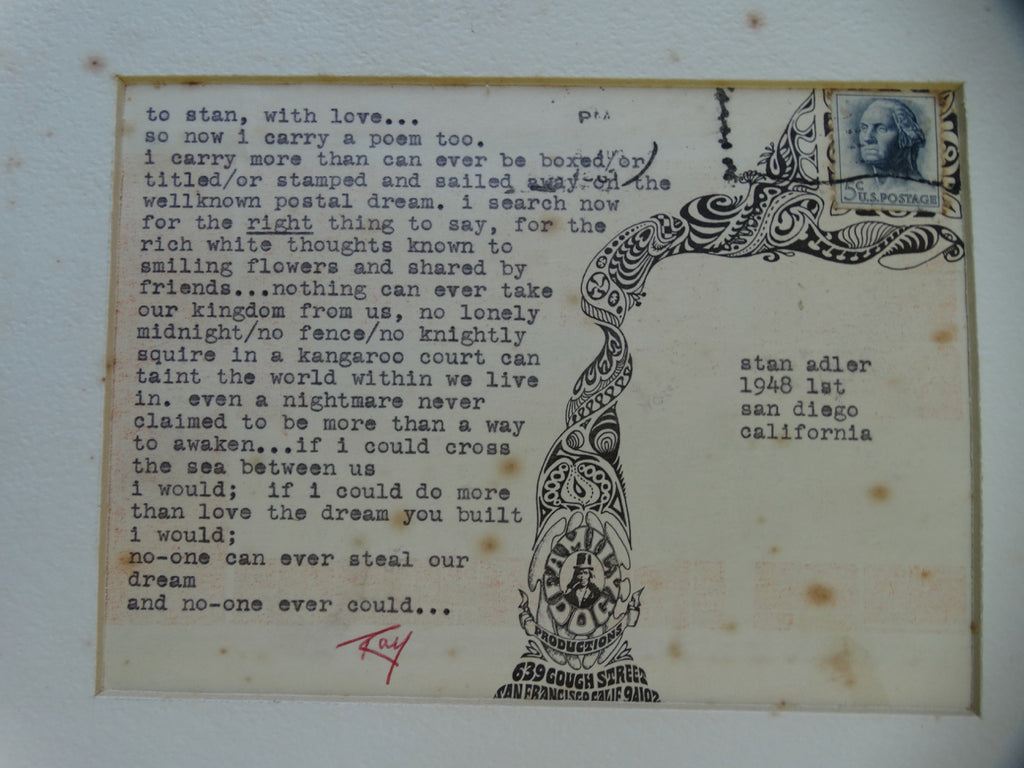 to stan, with love...
so now i carry a poem too.
i carry more than can ever be boxed/or
titled/or stamped and sailed away on the
wellknown postal dream. i search now
for the right thing to say, for the
rich white thoughts known to
smiling flowers and shared by
friends...nothing can ever take
our kingdom from us, no lonely
midnight/no fence/no knightly
squire in a kangaroo court can
taint the world within we live
in. even a nightmare never
claimed to be more than a way
to awaken...if i could cross
the sea between us
i would; if i could do more
than love the dream you built
i would;
no-one can ever steal our
dream
and no-one ever could...
PM
5c
U.S.POSTAGE
stan adler
1948 1st
san diego
california
FAMILY
DOG
PRODUCTIONS
639 GOUGH STREET
SAN FRANCISCO CALIF 94102